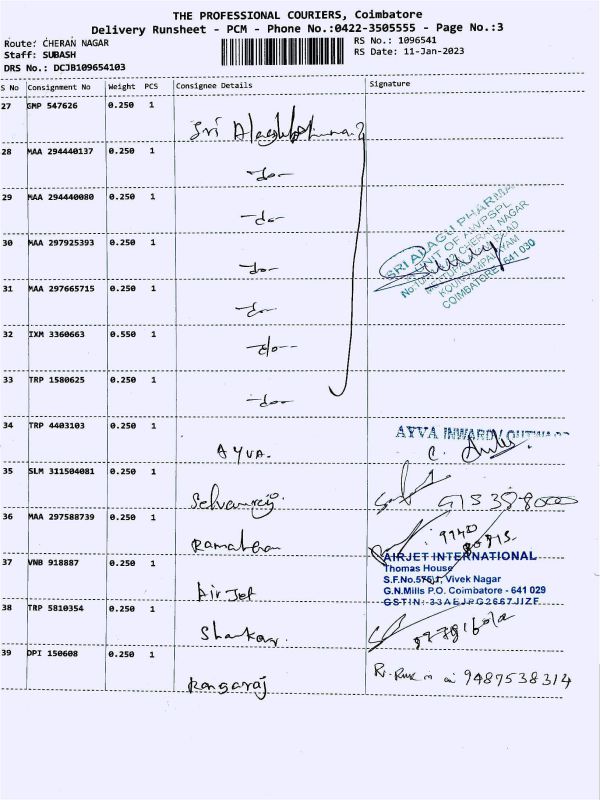 THE PROFESSIONAL COURIERS, Coimbatore
Delivery Runsheet - PCM - Phone No.:0422-3505555 - Page No.:3
Route: CHERAN NAGAR
RS No.: 1096541
Staff: SUBASH
RS Date: 11-Jan-2023
DRS No.: DCJB109654103
S No Consignment No Weight PCS Consignee Details Signature
27 GMP 547626 0.250 1 Sri
28 MAA 294440137 0.250 1 -do-
29 MAA 294440080 0.250 1 -do-
30 MAA 297925393 0.250 1 -do-
SRI ALAGU PHARMA
UNIT OF AWPSPL
CHERAN NAGAR
COIMBATORE - 641 030
31 MAA 297665715 0.250 1 -do-
32 IXM 3360663 0.550 1 -do-
33 TRP 1580625 0.250 1 -do-
34 TRP 4403103 0.250 1 AYVA.
AYVA INWARD/OUTWARD
35 SLM 311504081 0.250 1 Selvamraj.
36 MAA 297588739 0.250 1
37 VNB 918887 0.250 1 Air Jet
AIRJET INTERNATIONAL
Thomas House
S.F.No.575/1, Vivek Nagar
G.N.Mills P.O. Coimbatore - 641 029
38 TRP 5810354 0.250 1 Shankar.
39 DPI 150608 0.250 1 Rangaraj
9487538314